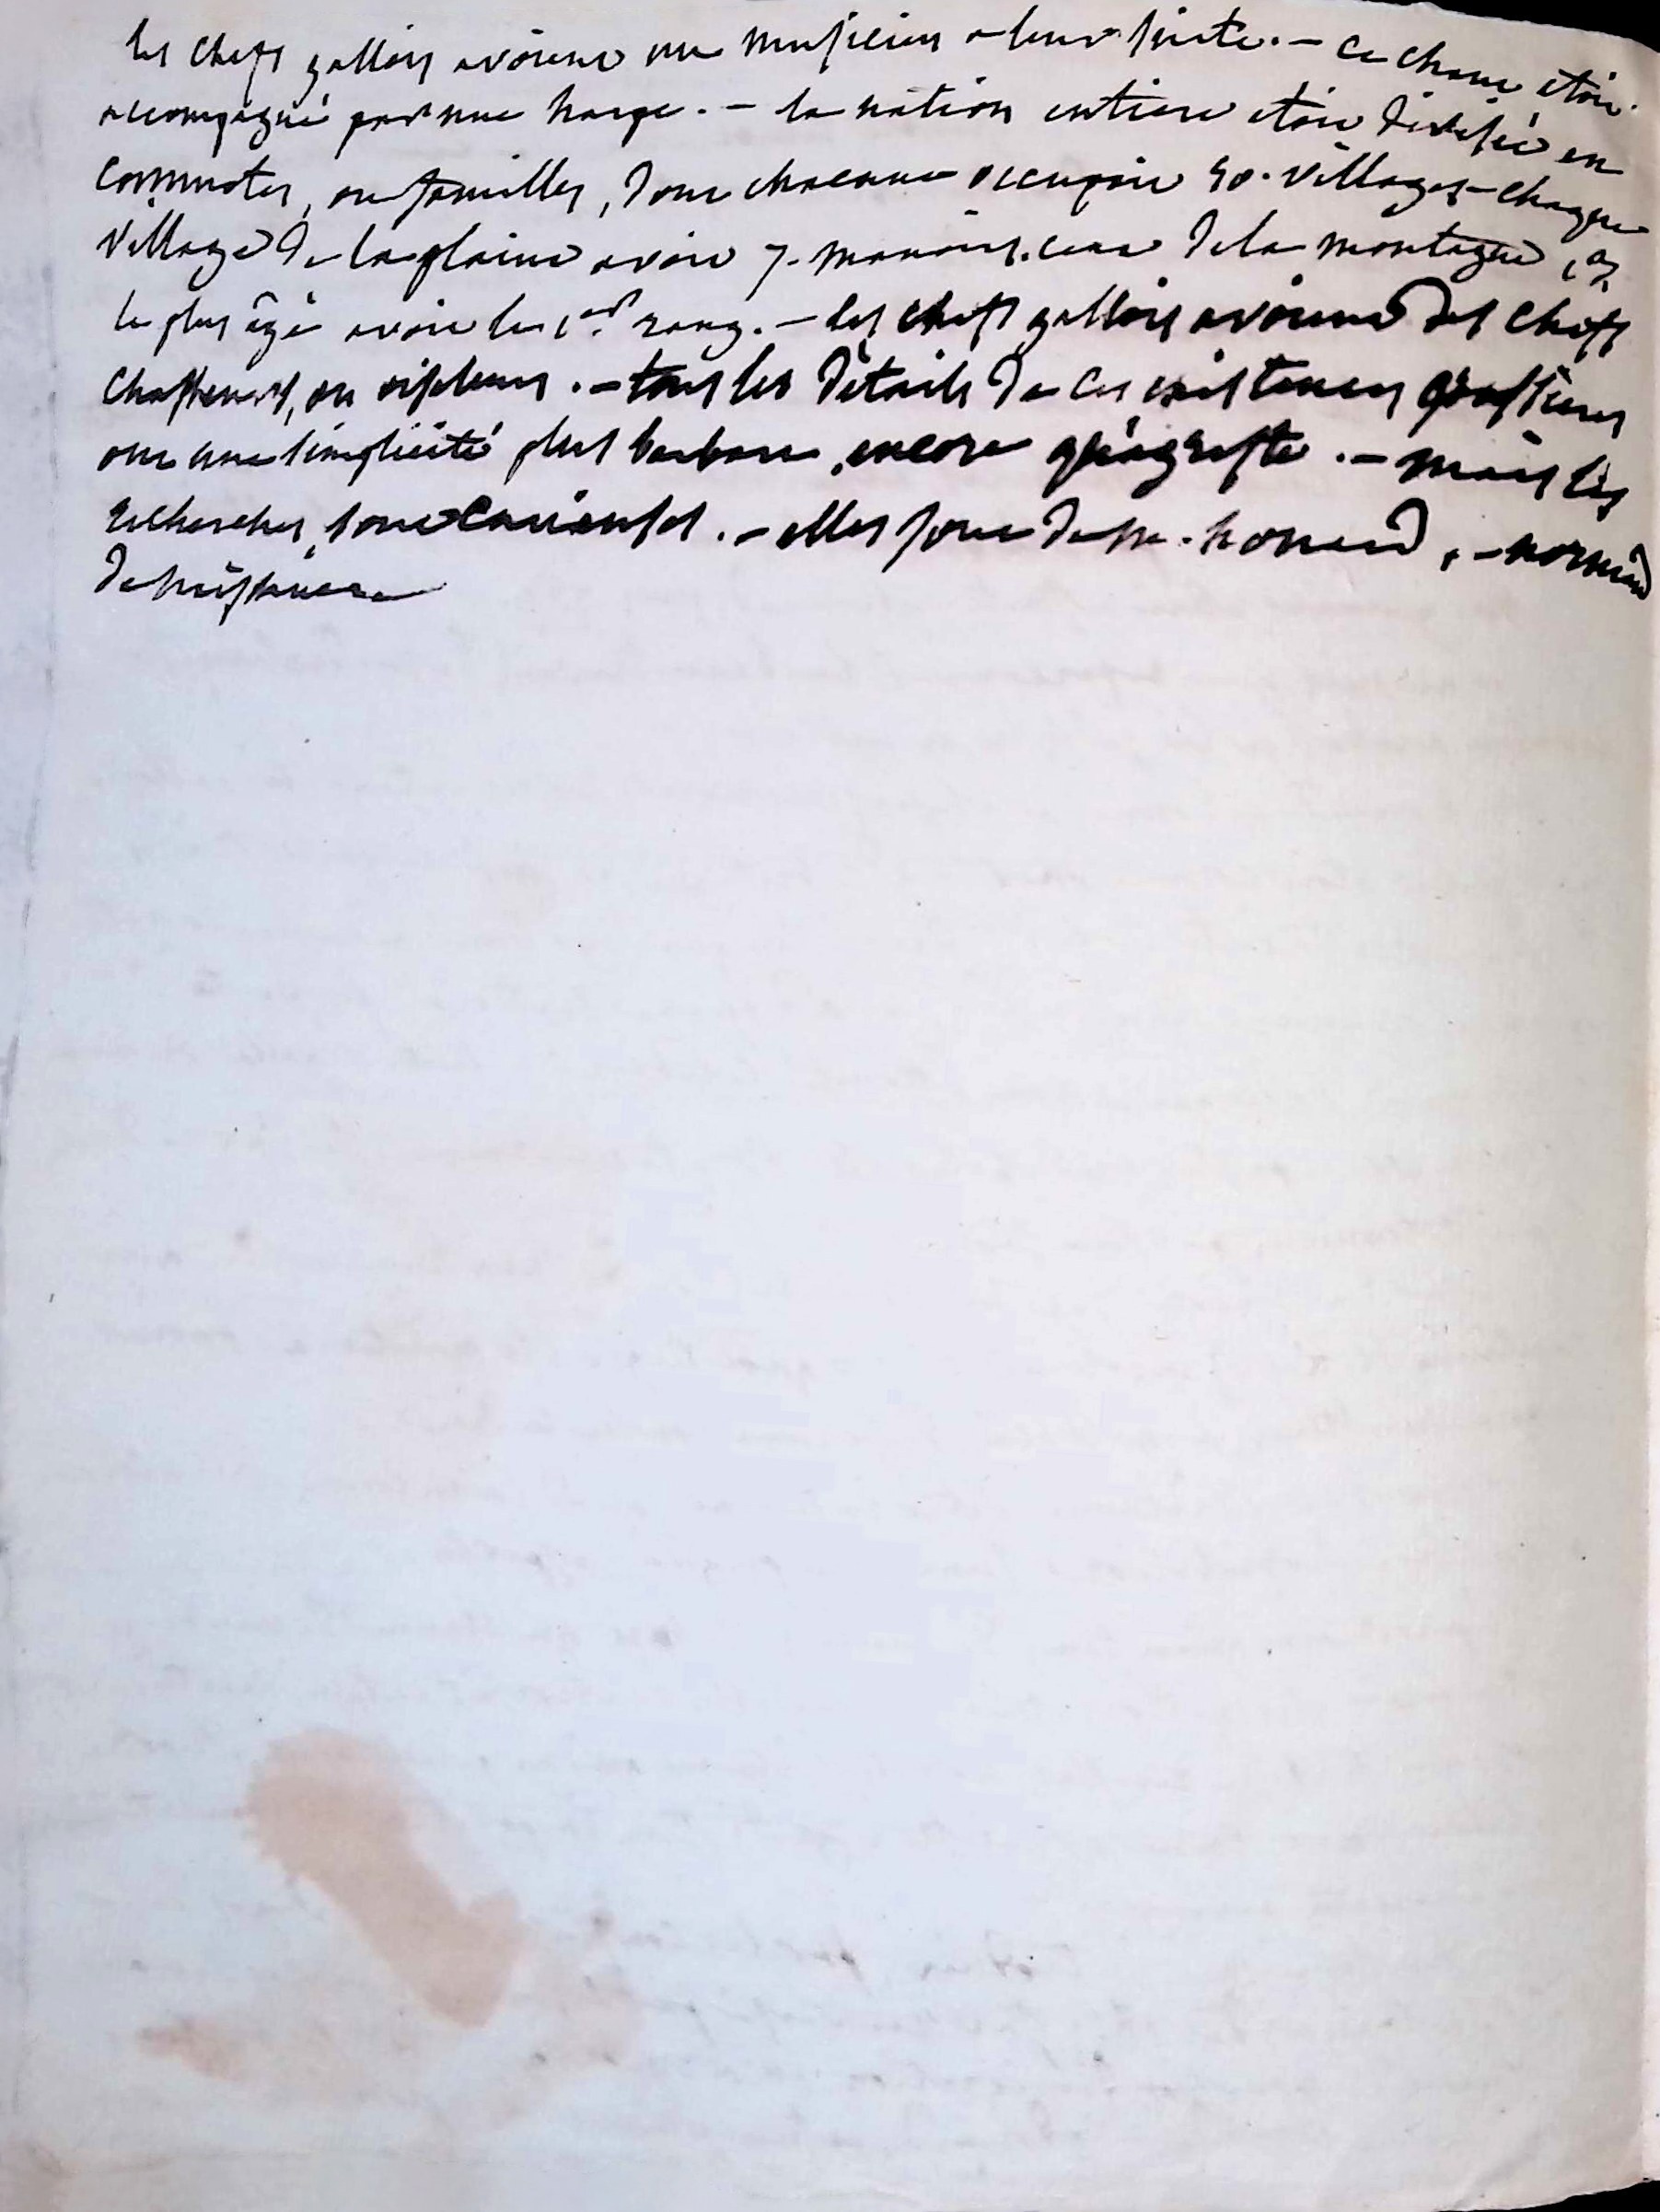 les chefs gallois avoient un musicien a leur suite. – ce chant étoit
accompagné par une harpe. – la nation entiere étoit divisée en
commotes, ou familles, dont chacune occupoit 50. villages – chaque
village de la plaine avoit 7. manoirs. ceux de la montagne,
le plus âgé avoit le 1er rang. – les chefs gallois avoient des chefs
chasseurs, ou oiseleurs. – tous les détails de ces existences
ont une simplicité plus barbare, encore . – mais les
recherches, sont curieuses. – elles sont de mr. , –